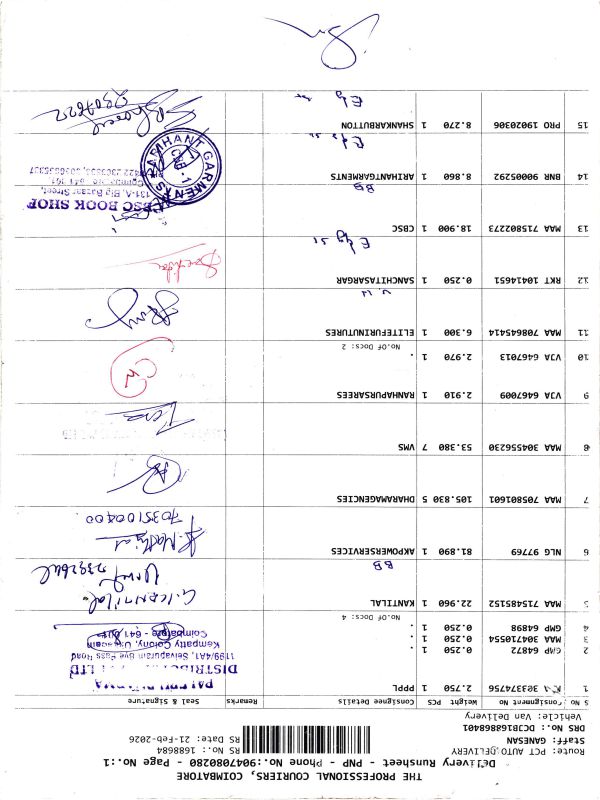 THE PROFESSIONAL COURIERS, COIMBATORE
Delivery Runsheet - PNP - Phone No:9047080280 - Page No.:1
Route: PCT AUTO DELIVERY
Staff: GANESAN
DRS No.: DCB168868401
Vehicle: Van Delivery
RS No.: 1688684
RS Date: 21-Feb-2026
S No Consignment No Weight PCS Consignee Details Remarks Seal & Signature
1 303374756 2.750 1 PPPL
DISTRIBUT LTD
1199/4A1, Selvapuram Bye Pass Road
Kempatty Colony, Ukkadam
Coimbatore - 641 001
2 GMP 64872 0.250 1 .
3 MAA 304710554 0.250 1 .
4 GMP 64898 0.250 1 .
No.Of Docs: 4
5 MAA 715485152 22.960 1 KANTILAL
G. KANTILAL
BB
6 NLG 97769 81.890 1 AKPOWERSERVICES
7035100400
7 MAA 705801601 105.830 5 DHARAMAGENCIES
8 MAA 304556230 53.380 7 VMS
9 VJA 6467009 2.910 1 RANHAPURSAREES
10 VJA 6467013 2.970 1 .
No.Of Docs: 2
11 MAA 708645414 6.300 1 ELITEFURNITUNUTS
12 RKT 10414651 0.250 1 SANCHITASARGAR
13 MAA 715802273 18.900 1 CBSC
CBSC BOOK SHOP
131-A, Big Bazaar Street,
Coimbatore - 641 001.
14 BNB 90005292 8.860 1 ARIHANTGARMENTS
BB
ARIHANT GARMENTS
CMB -1
15 PRO 19020306 8.270 1 SHANKARBUTTON